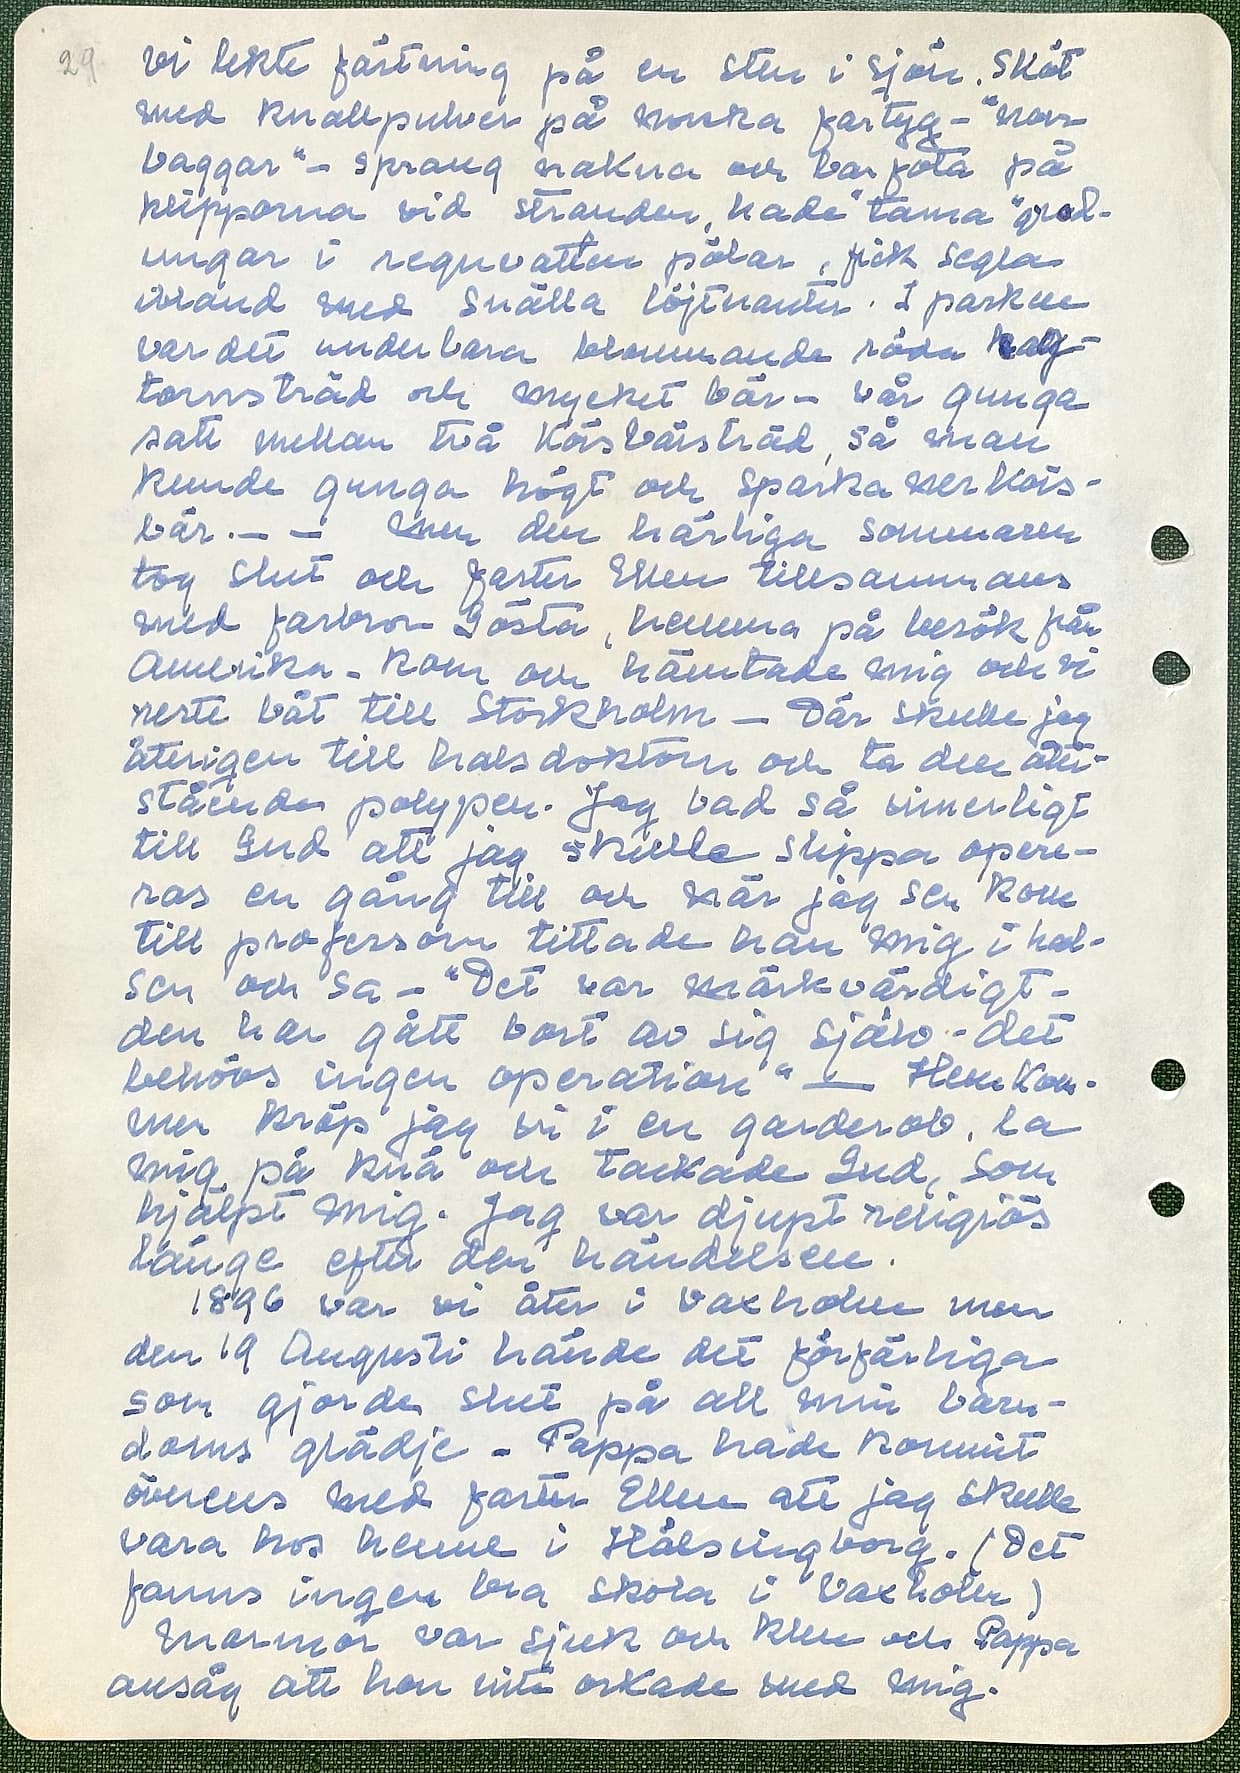 29
vi lekte fästning på en sten i sjön. Sköt
med knallpulver på norska fartyg - "norr-
baggar" - sprang nakna och barfota på
klipporna vid stranden, hade "tama" grod-
ungar i regnvatten pölar, fick segla
ibland med snälla löjtnanter. I parken
var det underbara blommande röda hag-
tornsträd och mycket bär - vår gunga
satt mellan två körsbärsträd, så man
kunde gunga högt och sparka ner körs-
bär. - - Men den härliga sommaren
tog slut och faster Ellen tillsammans
med farbror Gösta, hemma på besök från
Amerika - kom och hämtade mig och vi
reste båt till Stockholm - Där skulle jag
återigen till halsdoktorn och ta den åter-
stående polypen. Jag bad så innerligt
till Gud att jag skulle slippa opere-
ras en gång till och när jag sen kom
till professorn tittade han mig i hal-
sen och sa - "Det var märkvärdigt -
den har gått bort av sig själv - det
behövs ingen operation" — Hemkom-
men kröp jag in i en garderob, la
mig på knä och tackade Gud, som
hjälpt mig. Jag var djupt religiös
länge efter den händelsen.
1896 var vi åter i Vaxholm men
den 19 Augusti hände det förfärliga
som gjorde slut på all min barn-
doms glädje - Pappa hade kommit
överens med faster Ellen att jag skulle
vara hos henne i Hälsingborg. (Det
fanns ingen bra skola i Vaxholm)
Mormor var sjuk och klen och Pappa
ansåg att hon inte orkade med mig.